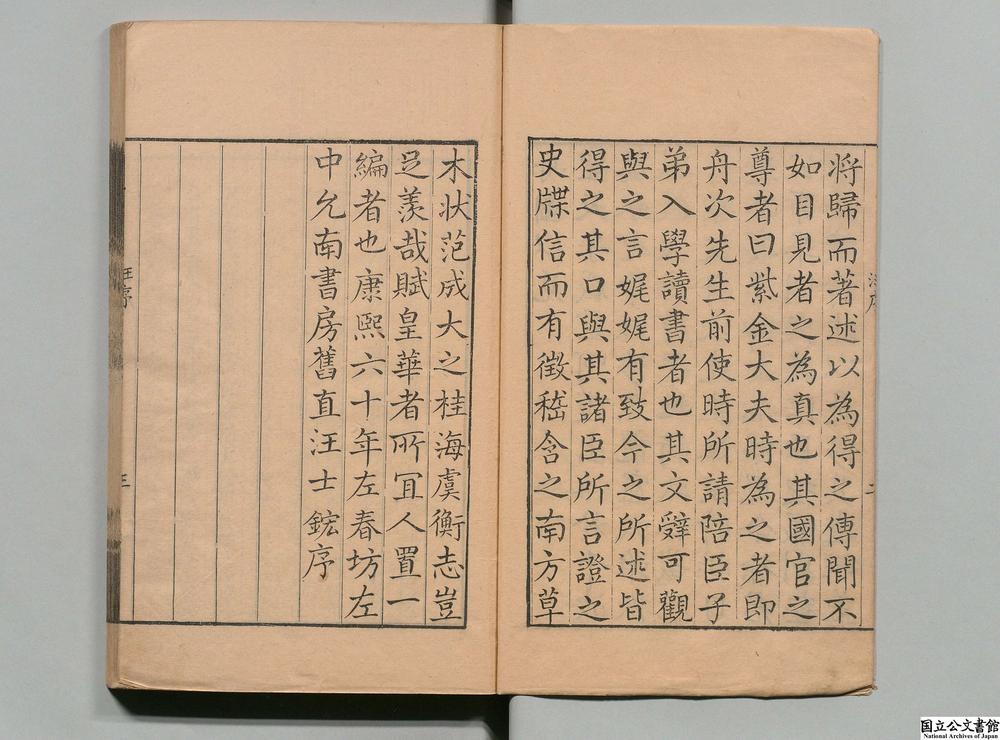 將歸而著述以為得之傳聞不
如目見者之為真也其國官之
尊者曰紫金大夫時為之者即
舟次先生前使時所請陪臣子
弟入學讀書者也其文辭可觀
與之言娓娓有致今之所述皆
得之其口與其諸臣所言證之
史牒信而有徵嵇含之南方草
木狀范成大之桂海虞衡志豈
足羨哉賦皇華者所宜人置一
編者也康熙六十年左春坊左
中允南書房舊直汪士鋐序
汪序
三
国立公文書館
National Archives of Japan